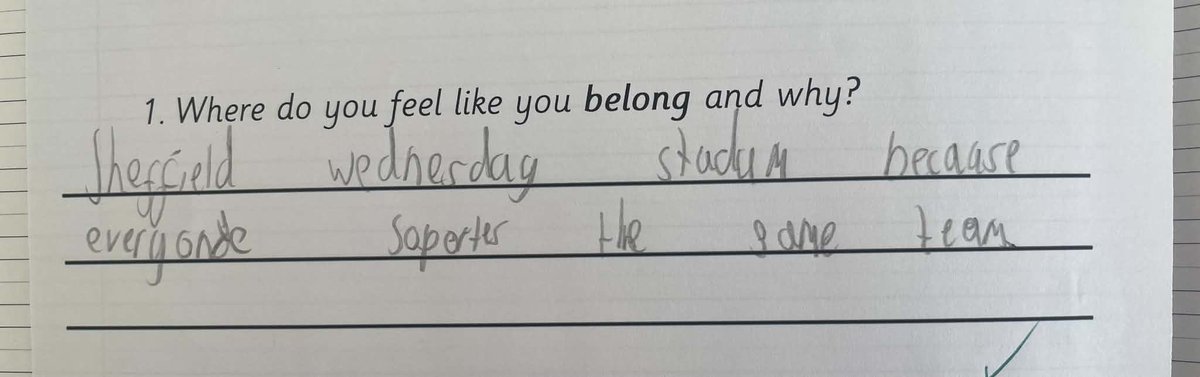 1. Where do you feel like you belong and why?
Sheffield wednesday stadum because
everyonde saporter the same team